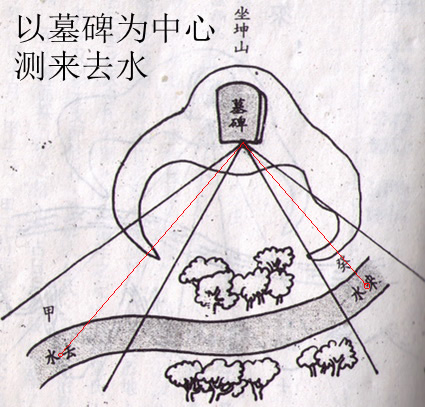 以墓碑为中心
测来去水
坐坤山
墓碑
癸
水来
甲
水去